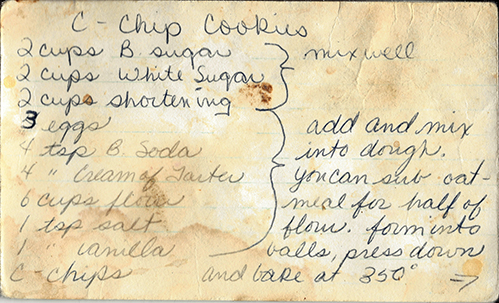 C - Chip Cookies
2 cups B. sugar
2 cups White Sugar
2 cups shortening
mix well
3 eggs
4 tsp B. Soda
4 " Cream of Tarter
6 cups flour
1 tsp salt
1 " vanilla
C - Chips
add and mix
into dough.
You can sub oat-
meal for half of
flour. form into
balls, press down
and bake at 350°
⇒